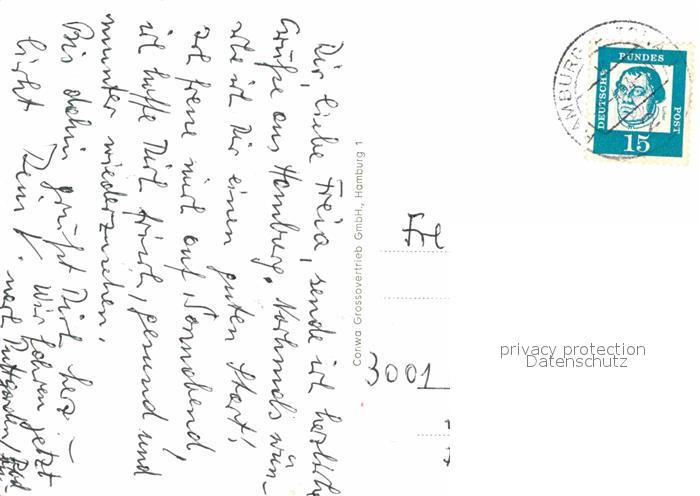 Dir, liebe Freia, sende ich herzliche
Grüße aus Hamburg. Nochmals wün-
sche ich Dir einen guten Start!
Ich freue mich auf Sonnabend,
ich hoffe Dich frisch, gesund und
munter wiederzusehen.
Bis dahin grüßt Dich herz-
lichst Dein
Wir fahren jetzt
nach Puttgarden
Conwa Grossovertrieb GmbH., Hamburg 1
HAMBURG
DEUTSCHE BUNDES POST
15
Fre
3001
privacy protection
Datenschutz